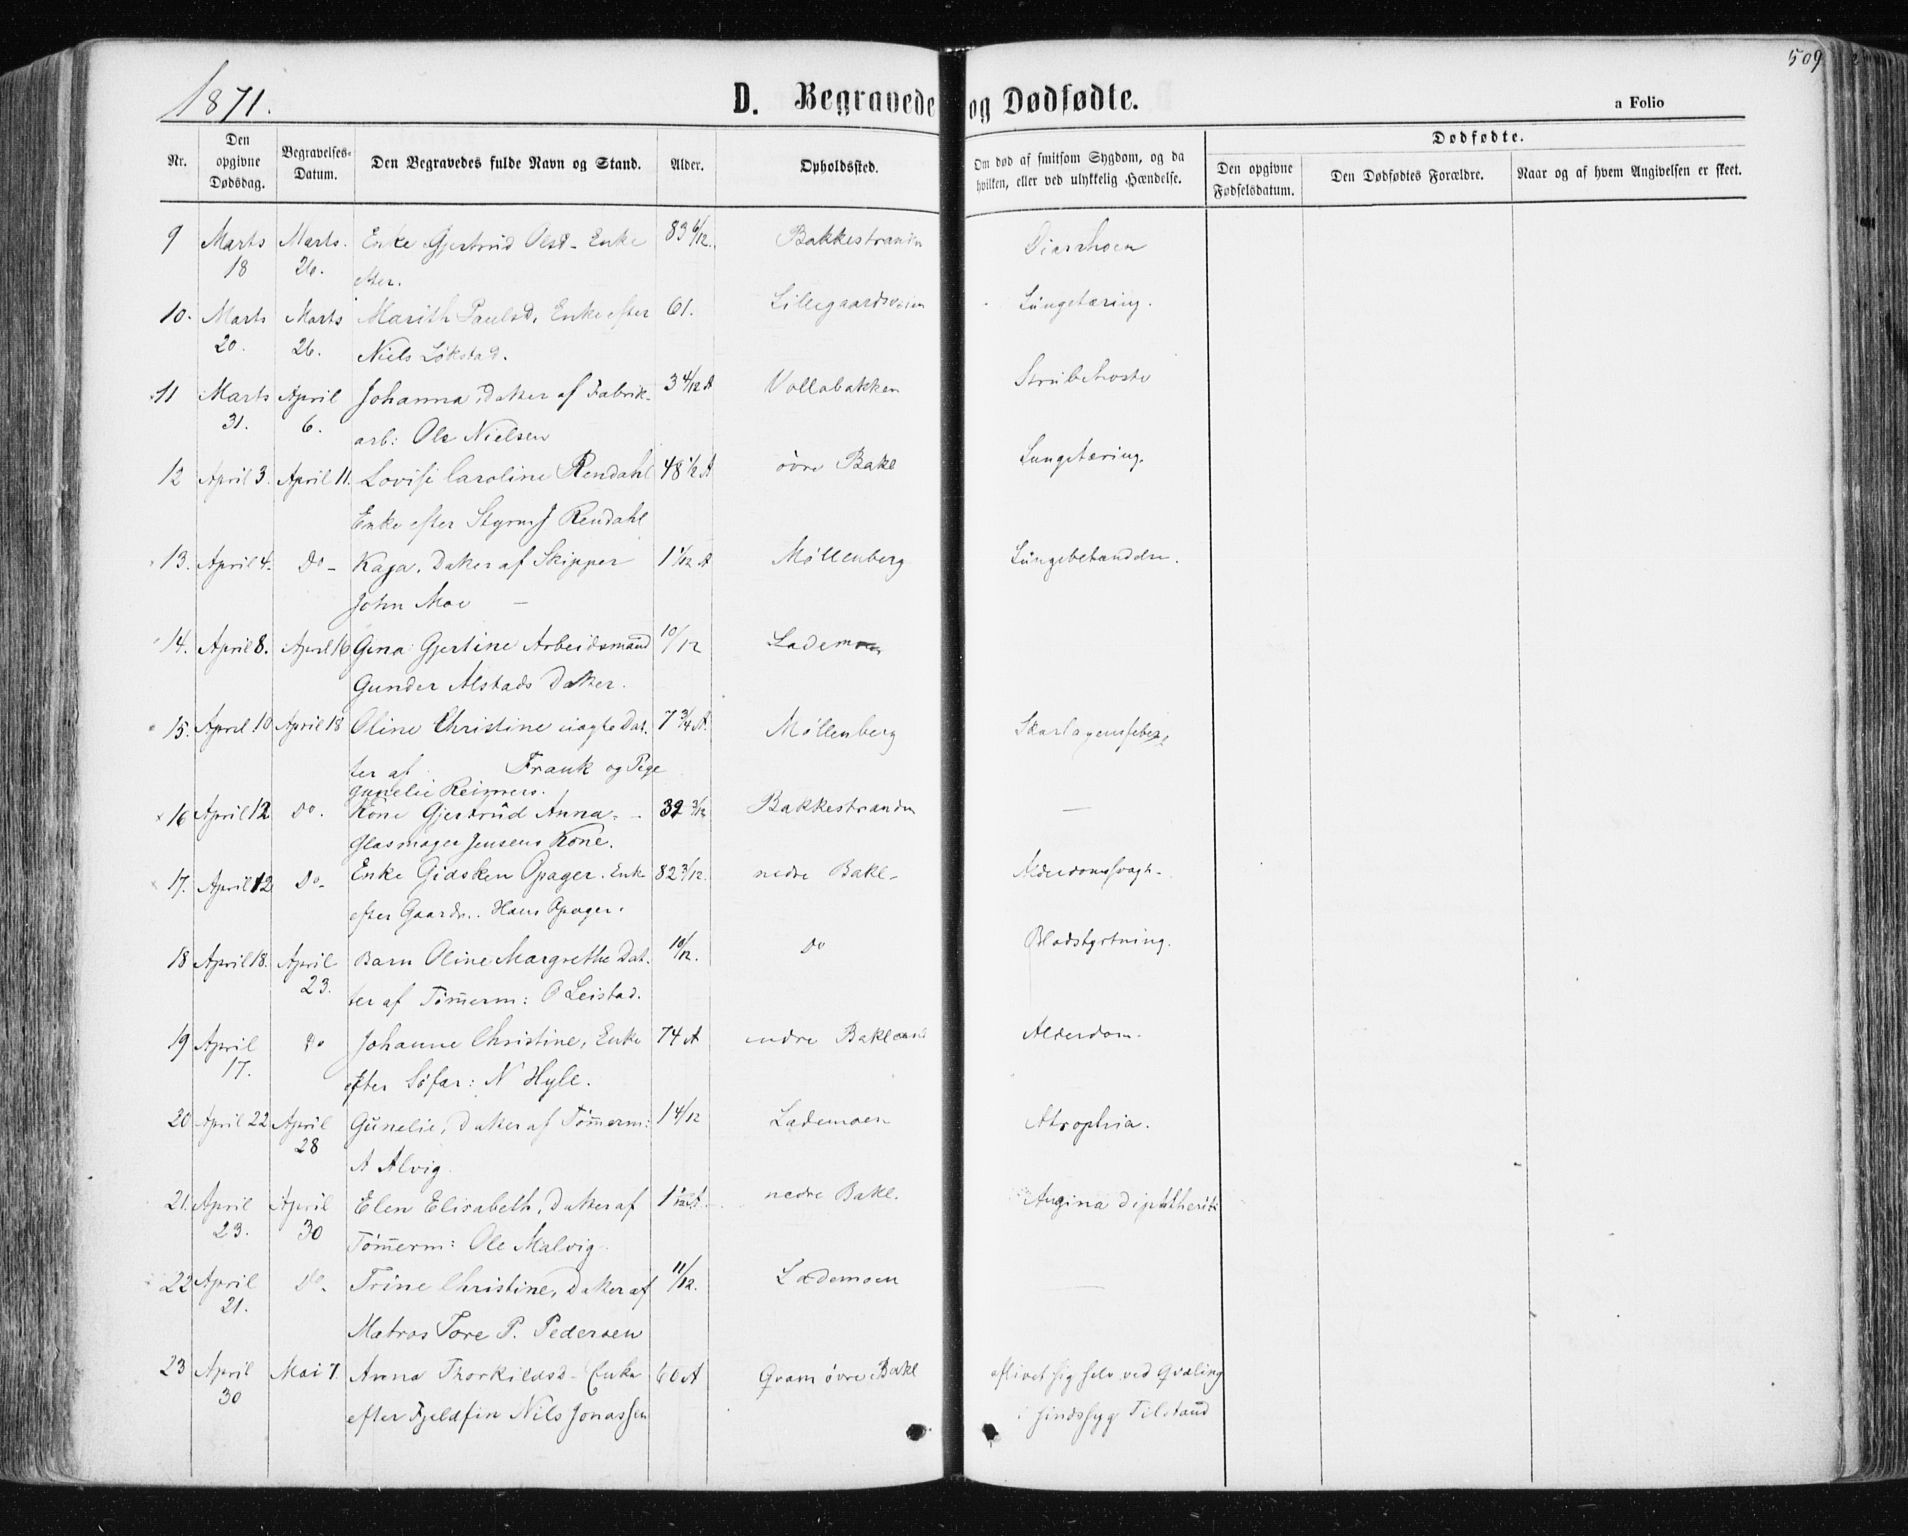 1871.
D. Begravede og Dødfødte.
509
a Folio
Nr.
Den opgivne Dødsdag.
Begravelses-Datum.
Den Begravedes fulde Navn og Stand.
Alder.
Opholdssted.
Om død af smitsom Sygdom, og da hvilken, eller ved ulykkelig Hændelse.
Dødfødte.
Den opgivne Fødselsdatum.
Den Dødfødtes Forældre.
Naar og af hvem Angivelsen er skeet.
9 Marts 18 Marts. 26. Enke Gjertrud Olsd - Enke 83 6/12. Bakkestranden Diarrhoen
efter.
10. Marts 20. Marts 26. Marith Paulsd, Enke efter 61. Lillegaardsveien Lungetæring.
Niels Løkstad.
11 Marts 31. April 6. Johanna, Datter af Fabrik- 3 4/12 A Vollabakken Strubehoste
arb: Ole Nielsen
12 April 3. April 11. Lovise Caroline Rendahl 48 1/2 A øvre Bakl Lungetæring.
Enke efter Styrm J Rendahl
13. April 4. Do - Kaja, Datter af Skipper 1 1/12 A Møllenberg Lungebetændelse.
John Moe —
14. April 8. April 16 Gina Gjertine Arbeidsmand 10/12 Lademoen
Gunder Alstads Datter.
15. April 10 April 18 Oline Christine uægte Dat- 7 3/4 A. Møllenberg Skarlagensfeber
ter af Frank og Pige
Gunelie Reimers.
16 April 12 Do. Kone Gjertrud Anna - 39 3/12 Bakkestranden —
Glasmager Jensens Kone.
17. April 12 Do - Enke Gidsken Opager. Enke 82 3/12. nedre Bakl - Alderdomssvagh -
efter Gaardr.. Hans Opager.
18 April 18. April 23. Barn Oline Margrethe Dat- 10/12. Do Blodstyrtning.
ter af Tømerm: O Leistad.
19 April 17. Do Johanne Christine, Enke 74 A nedre Bakland Alderdom.
efter Søfar: N Hyle.
20 April 22 April 28 Gunelie, Datter af Tømerm: 1 4/12 Lademoen Atrophia.
A Alvig.
21. April 23. April 30 Elen Elisabeth, Datter af nedre Bakl. Angina diphtherit
Tømerm: Ole Malvig.
22 April 21. Do. Trine Christine, Datter af 11/12. Lademoen —
Matros Tore P. Pedersen
23 April 30 Mai 7. Anna Thorkildsd - Enke 60 A Qvam øvre Bakl aflivet sig selv ved Qvæling
efter Fjeldfin Nils Jonassen i sindssyg Tilstand